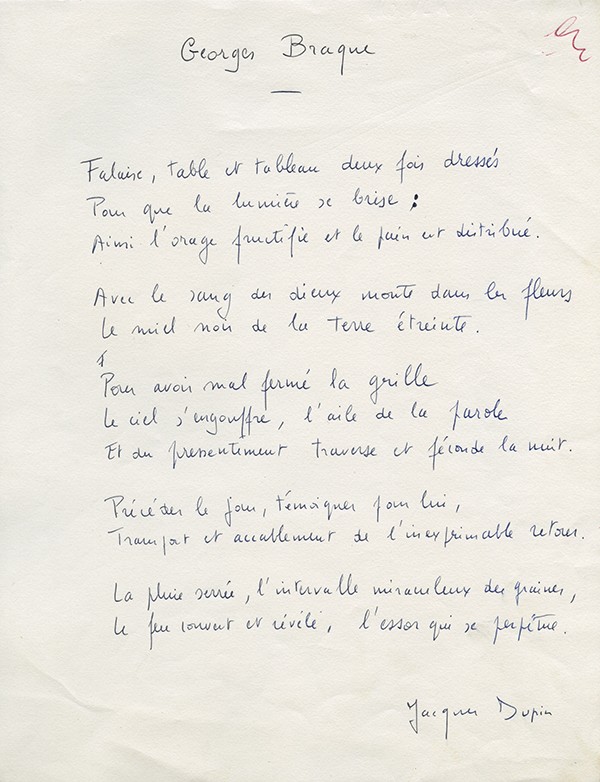 Georges Braque
Falaise, table et tableau deux fois dressés
Pour que la lumière se brise ;
Ainsi l'orage fructifie et le pain est distribué.
Avec le sang des dieux monte dans les fleurs
Le miel noir de la terre étreinte.
Pour avoir mal fermé la grille
Le ciel s'engouffre, l'aile de la parole
Et du pressentiment traverse et féconde la nuit.
Précéder le jour, témoigner pour lui,
Transport et accablement de l'inexprimable retour.
La pluie serrée, l'intervalle miraculeux des graines,
Le feu couvert et révélé, l'essor qui se perpétue.
Jacques Dupin